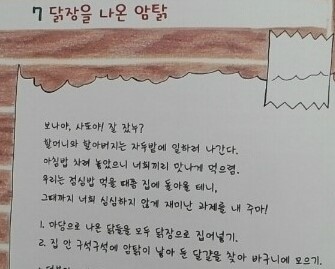 7 닭장을 나온 암탉
보나야, 사또야! 잘 잤누?
할머니와 할아버지는 자두밭에 일하러 나간다.
아침밥 차려 놓았으니 너희끼리 맛나게 먹으렴.
우리는 점심밥 먹을 때쯤 집에 돌아올 테니,
그때까지 너희 심심하지 않게 재미난 과제를 내 주마!
1. 마당으로 나온 닭들을 모두 닭장으로 집어넣기.
2. 집 안 구석구석에 암탉이 낳아 둔 달걀을 찾아 바구니에 모으기.